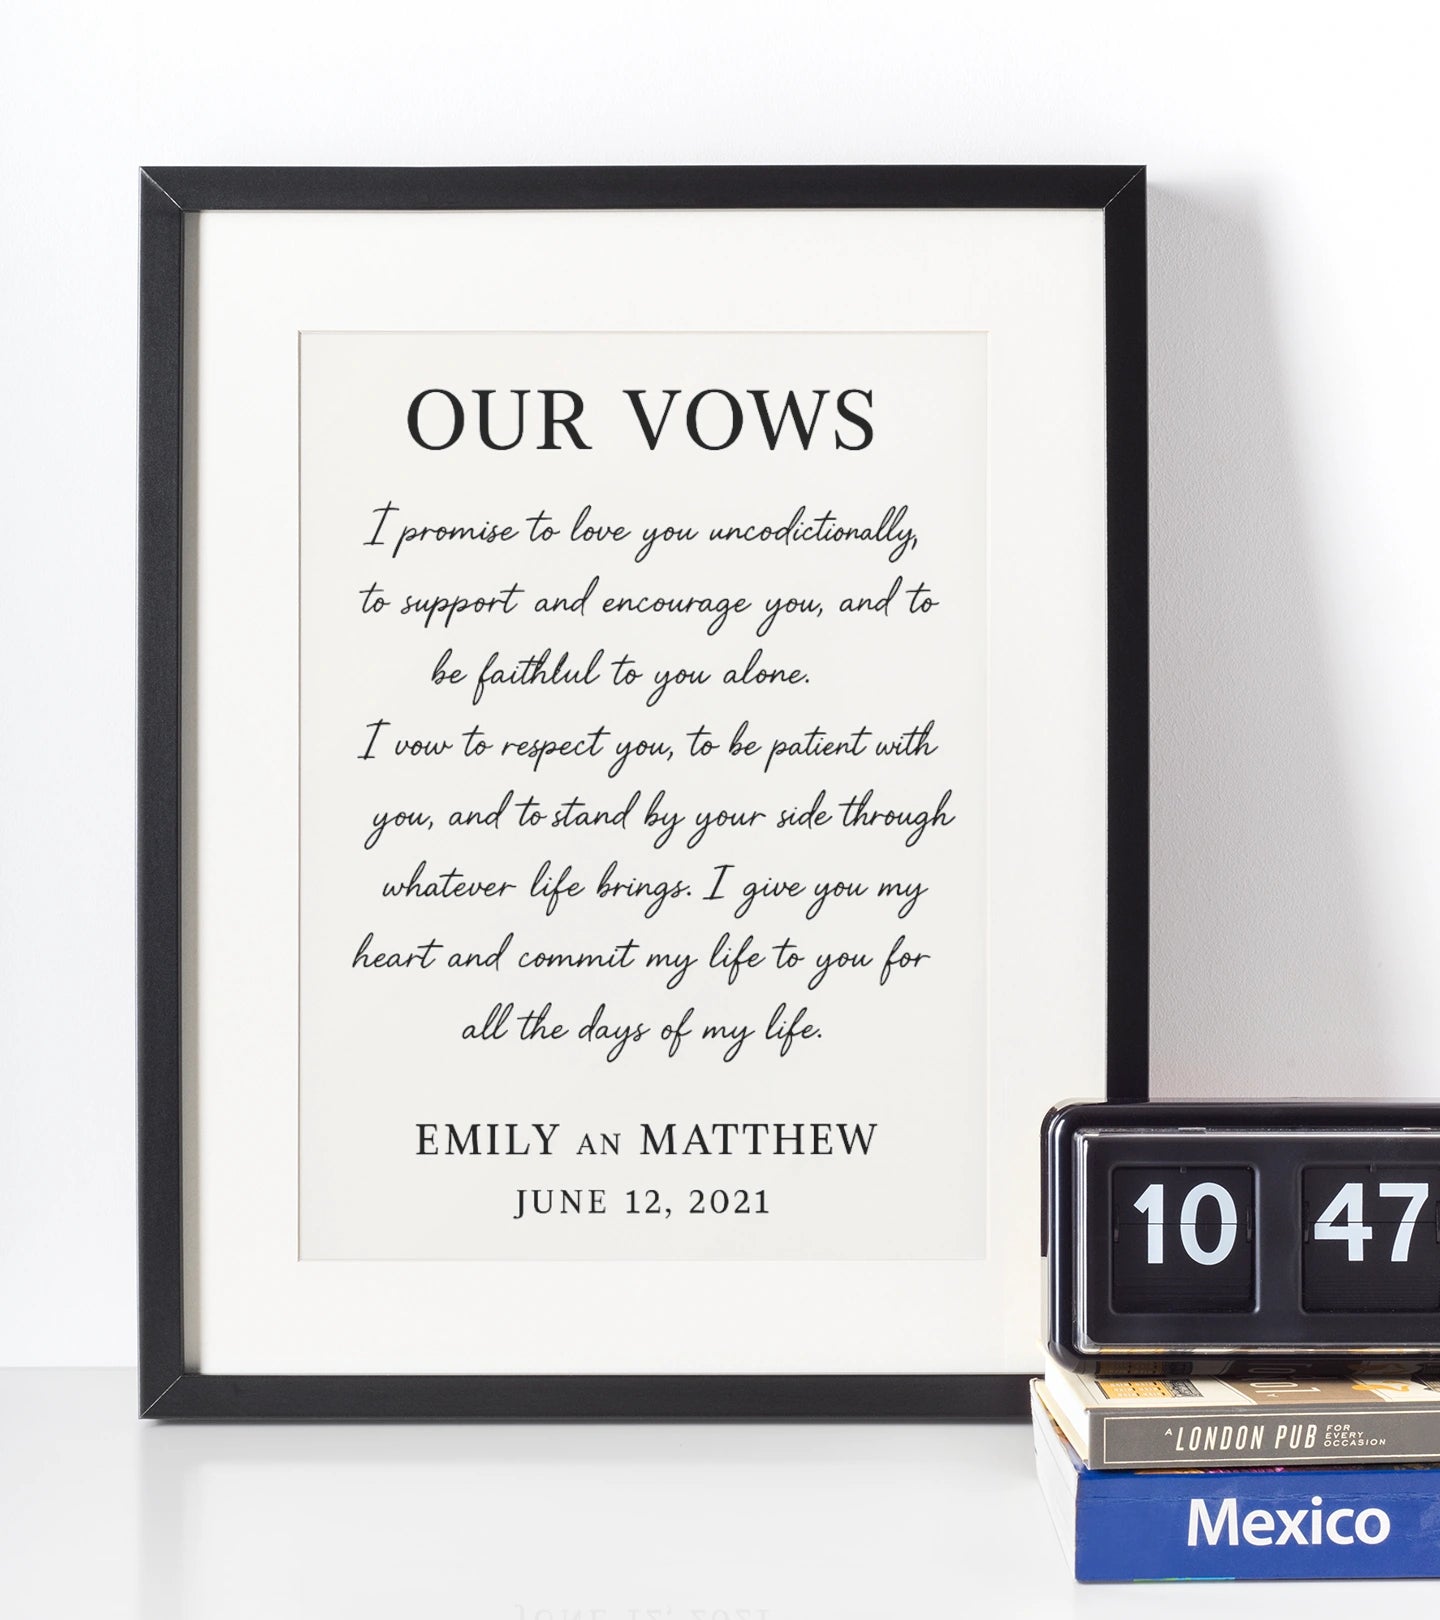 OUR VOWS
I promise to love you uncodictionally,
to support and encourage you, and to
be faithlul to you alone.
I vow to respect you, to be patient with
you, and to stand by your side through
whatever life brings. I give you my
heart and commit my life to you for
all the days of my life.
EMILY AN MATTHEW
JUNE 12, 2021
10 47
A LONDON PUB FOR EVERY OCCASION
Mexico